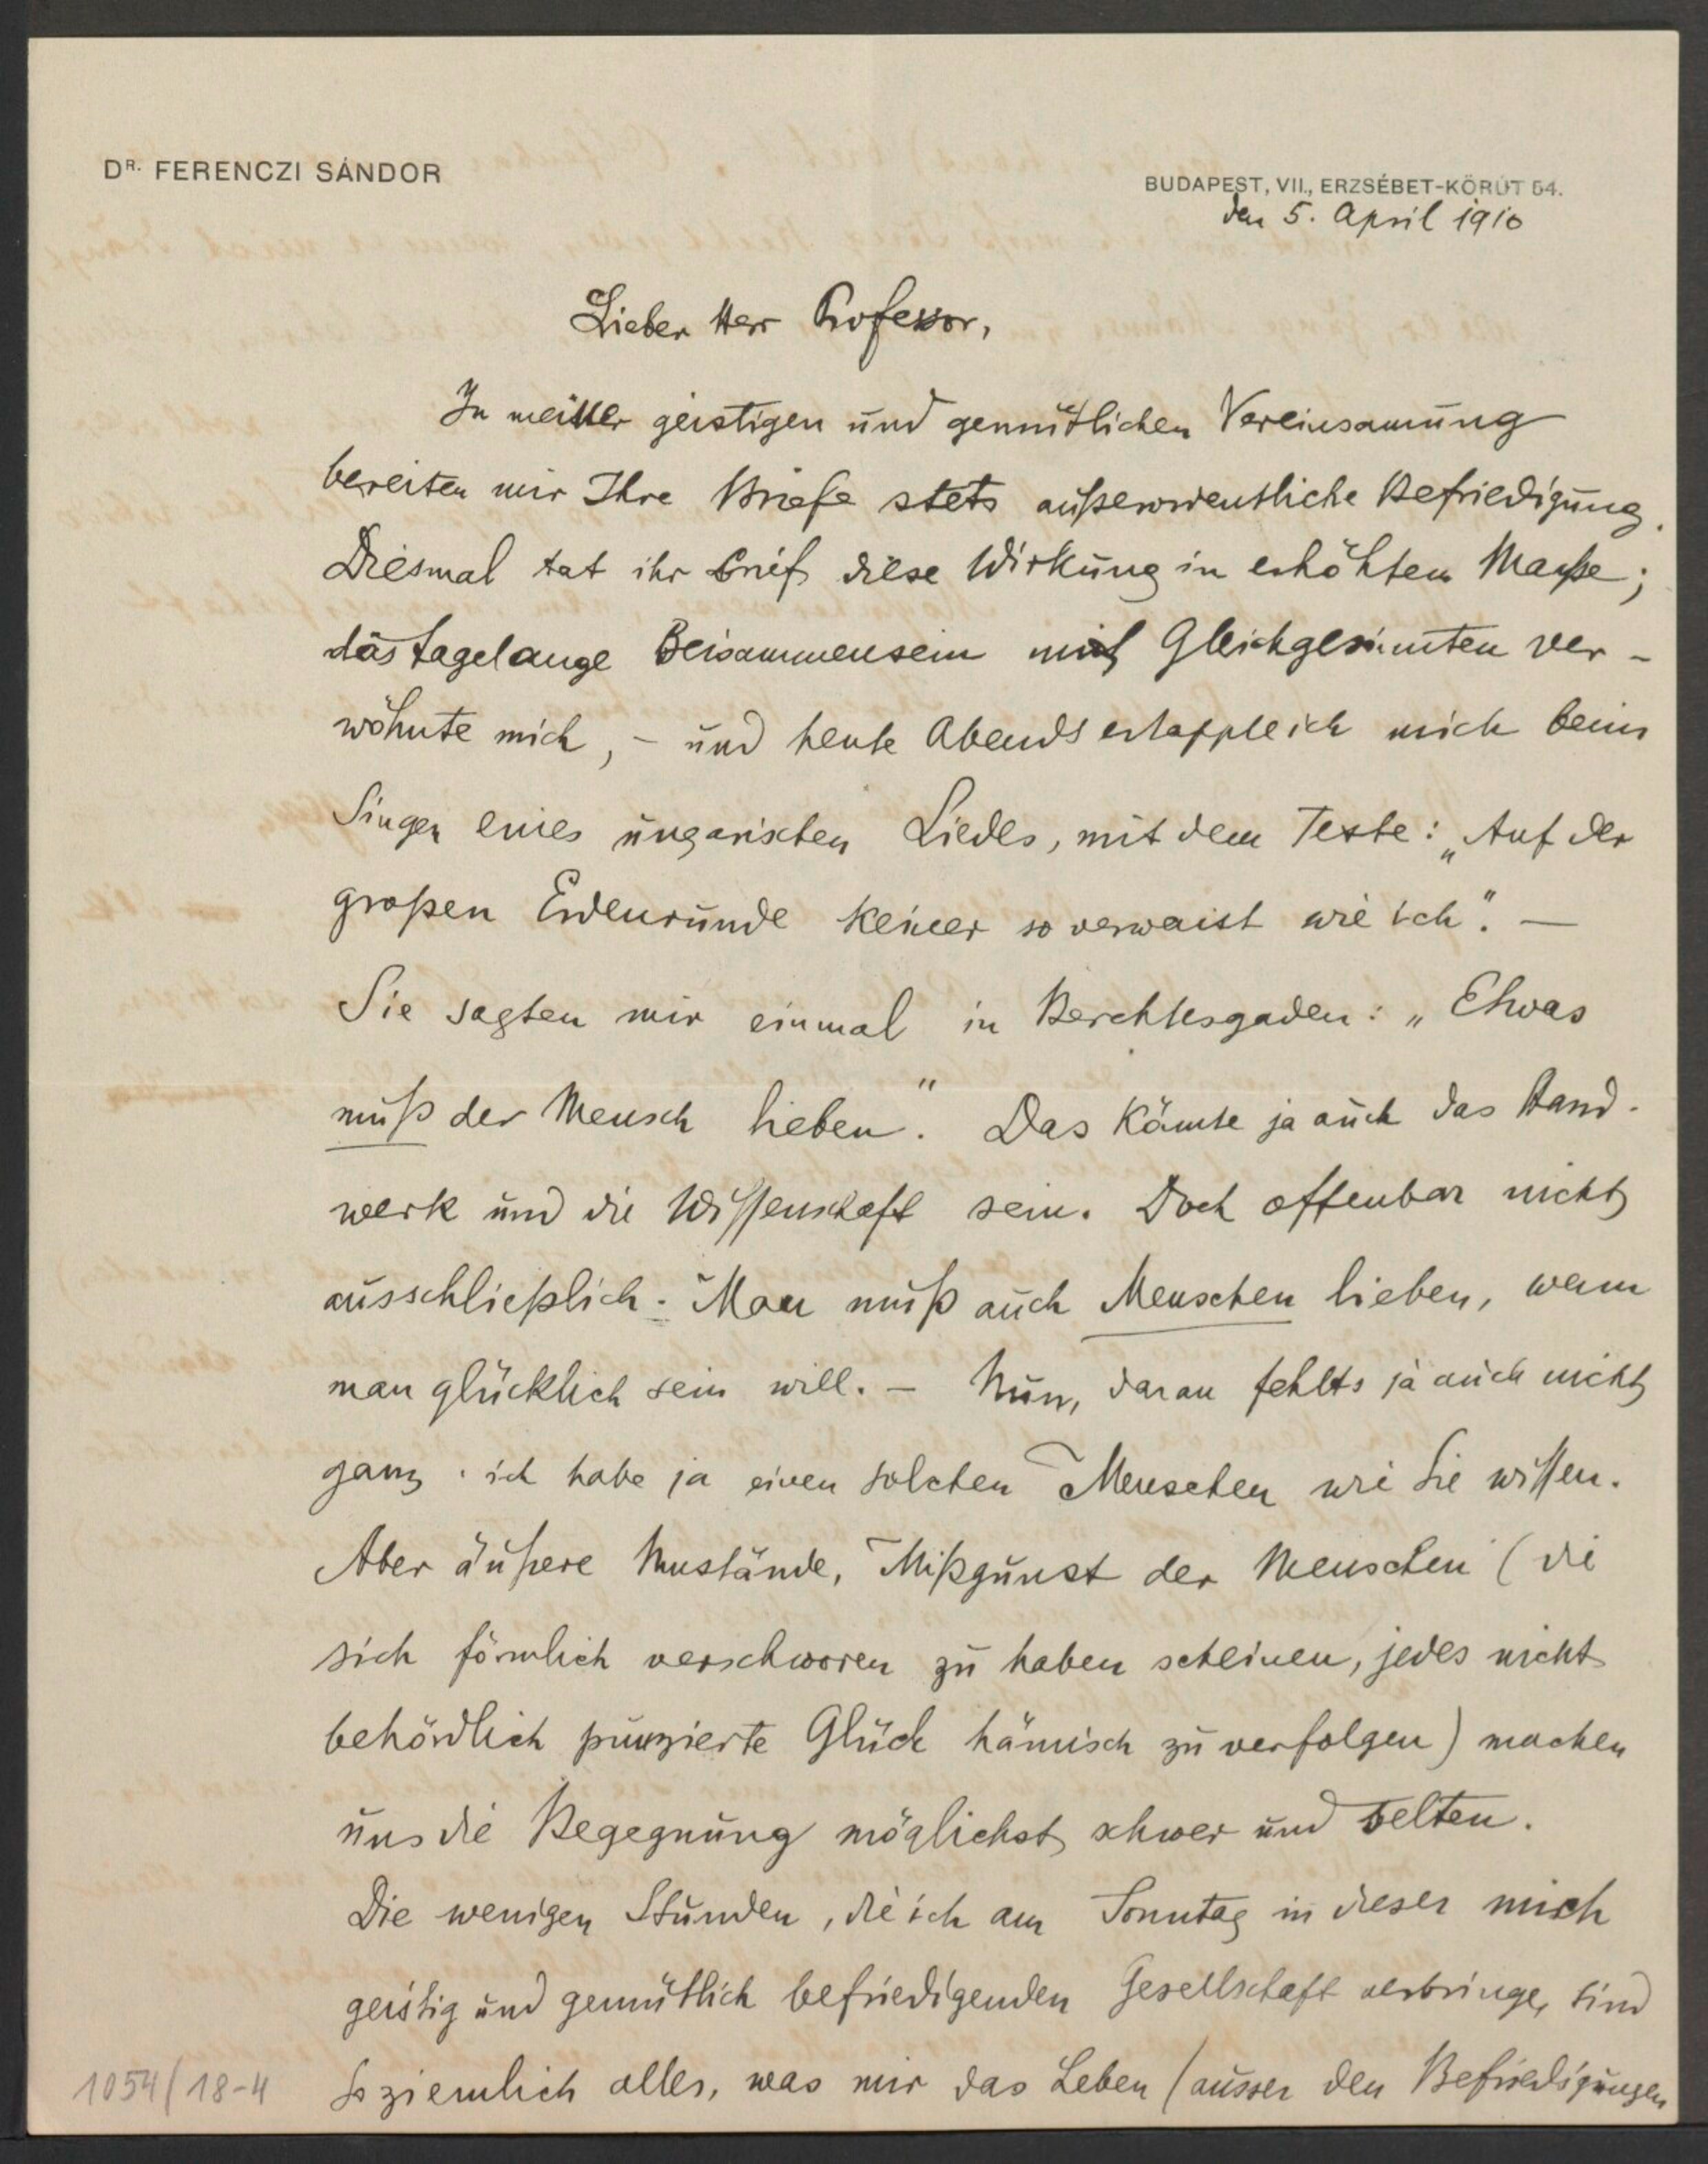 DR. FERENCZI SÁNDOR
BUDAPEST, VII., ERZSÉBET-KÖRÚT 54.
den 5. April 1910
Lieber Herr Professor,
In meiner geistigen und gemütlichen Vereinsamung
bereiten mir Ihre Briefe stets außerordentliche Befriedigung.
Diesmal tat ihr Brief diese Wirkung in erhöhtem Maße;
das tagelange Beisammensein mit Gleichgesinnten ver-
wöhnte mich, – und heute Abends ertappte ich mich beim
Singen eines ungarischen Liedes, mit dem Texte: „Auf der
großen Erdenrunde keiner so verwaist wie ich". —
Sie sagten mir einmal in Berchtesgaden: „Etwas
muß der Mensch lieben". Das könnte ja auch das Hand-
werk und die Wissenschaft sein. Doch offenbar nicht
ausschließlich. Man muß auch Menschen lieben, wenn
man glücklich sein will. – Nun, daran fehlts ja auch nicht
ganz; ich habe ja einen solchen Menschen wie Sie wissen.
Aber äußere Umstände, Mißgunst der Menschen (die
sich förmlich verschworen zu haben scheinen, jedes nicht
behördlich punzierte Glück hämisch zu verfolgen) machen
uns die Begegnung möglichst schwer und selten.
Die wenigen Stunden, die ich am Sonntag in dieser mich
geistig und gemütlich befriedigenden Gesellschaft verbringe, sind
so ziemlich alles, was mir das Leben (ausser den Befriedigungen
1054/18-4